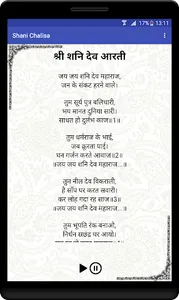 13:11
Shani Chalisa
श्री शनि देव आरती
जय जय शनि देव महाराज,
जन के संकट हरने वाले।
तुम सूर्य पुत्र बलिधारी,
भय मानत दुनिया सारी।
साधत हो दुर्लभ काज॥1॥
तुम धर्मराज के भाई,
जब क्रूरता पाई।
घन गर्जन करते आवाज॥2॥
॥जय जय शनि देव महाराज...॥
तुम नील देव विकराली,
है साँप पर करत सवारी।
कर लोह गदा रह साज॥3॥
॥जय जय शनि देव महाराज...॥
तुम भूपति रंक बनाओ,
निर्धन सछत्र पर आयो।